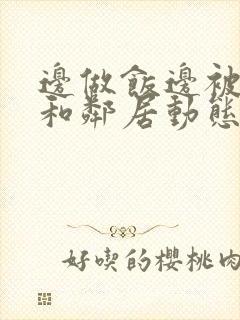 邊做飯邊被
和鄰居動態
好喫的櫻桃肉